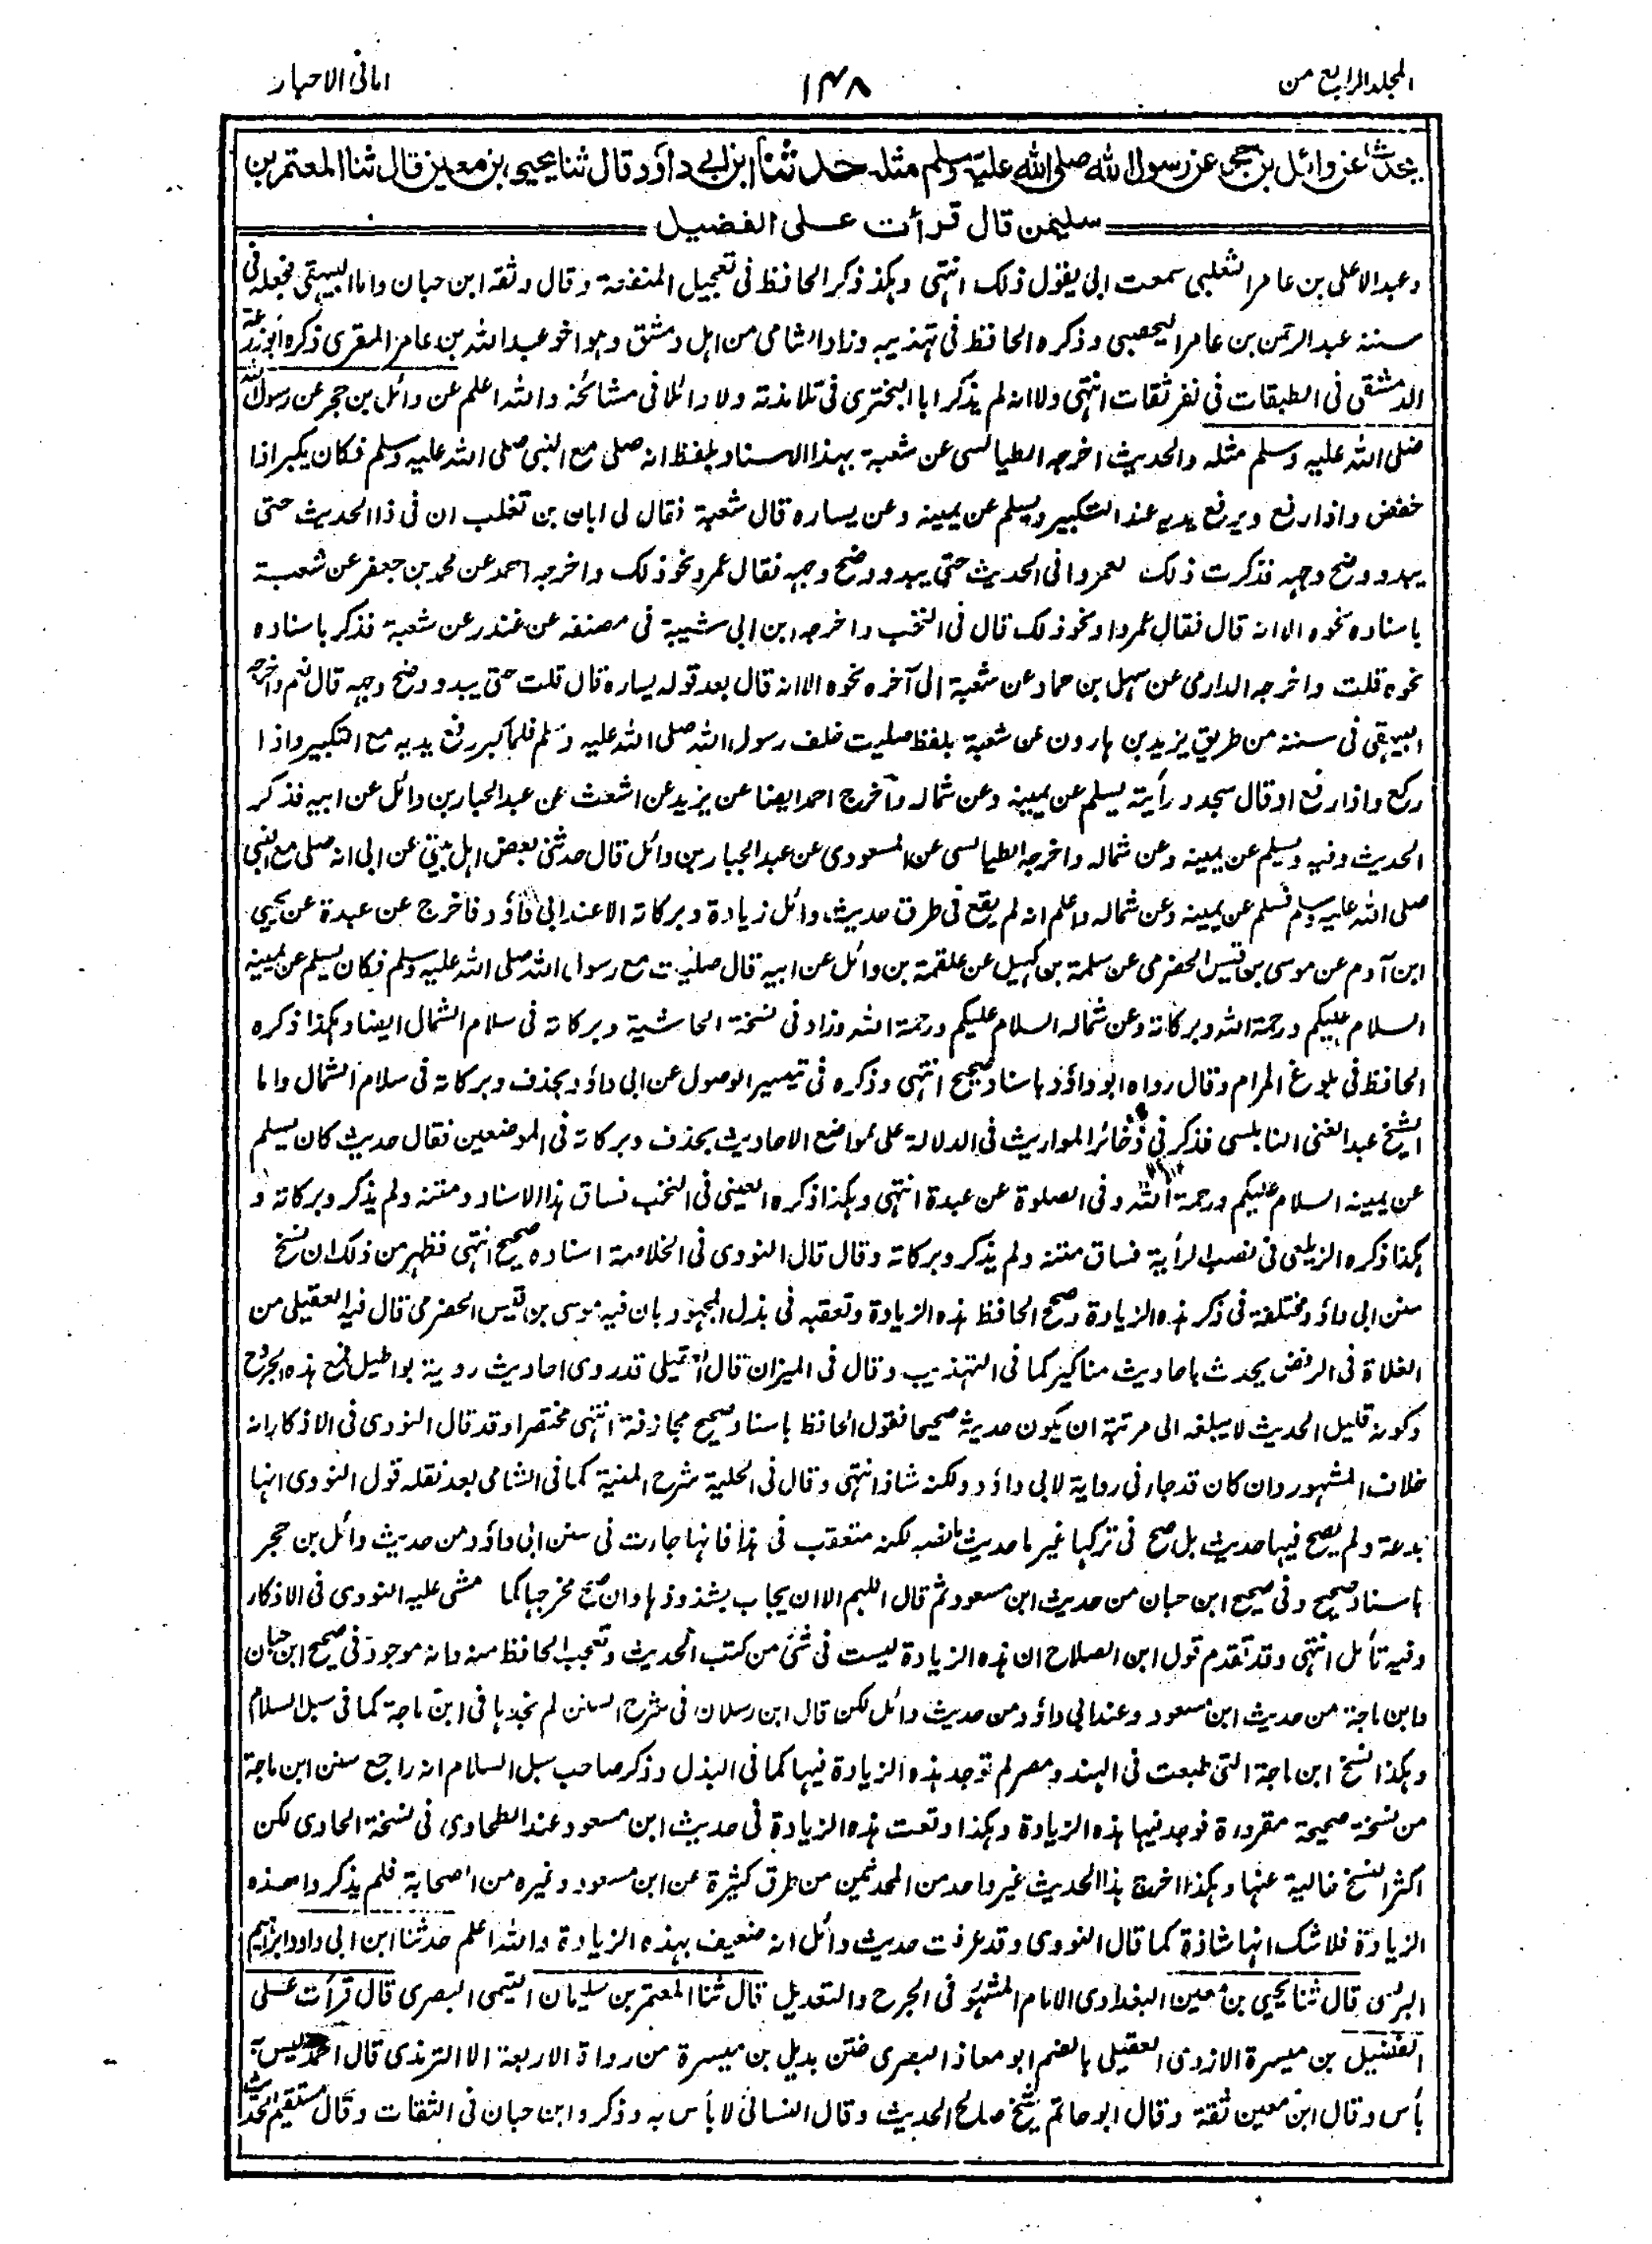 المجلد الرابع من
١٣٨
امانى الاحبار
يحدث عن وائل بن حجر عن رسول الله صلى الله عليه وسلم مثله حدثنا ابن ابى داؤد قال ثنا يحيى بن معين قال ثنا المعتمر بن
سليمن قال قرأت على الفضيل
وعبد الاعلى بن عامر الثعلبى سمعت ابى يقول ذلك انتهى وهكذا ذكر الحافظ فى تعجيل المنفعة وقال وثقه ابن حبان واما البيهقى فجعله فى
سننه عبد الرحمن بن عامر اليحصبى وذكره الحافظ فى تهذيبه وزاد الشامى من اهل دمشق وهو اخو عبد الله بن عامر المقرى ذكره ابو زرعة
الدمشقى فى الطبقات فى نفر ثقات انتهى ولا انه لم يذكر ابا البخترى فى تلامذته ولا وائلا فى مشائخه والله اعلم عن وائل بن حجر عن رسول الله
صلى الله عليه وسلم مثله والحديث اخرجه الطيالسى عن شعبة بهذا الاسناد بلفظ انه صلى مع النبى صلى الله عليه وسلم فكان يكبر اذا
خفض واذا رفع ويرفع يديه عند التكبير ويسلم عن يمينه وعن يساره قال شعبة فقال لى ابان بن تغلب ان فى ذا الحديث حتى
يبدو وضح وجهه فذكرت ذلك لعمرو افى الحديث حتى يبدو وضح وجهه فقال عمرو نحو ذلك واخرجه احمد عن محمد بن جعفر عن شعبة
باسناده نحوه الا انه قال فقال عمرو او نحو ذلك قال فى النخب واخرجه ابن ابى شيبة فى مصنفه عن غندر عن شعبة فذكر باسناده
نحوه قلت واخرجه الدارمى عن سهل بن حماد عن شعبة الى آخره نحوه الا انه قال بعد قوله يساره قال قلت حتى يبدو وضح وجهه قال نعم واخرجه
البيهقى فى سننه من طريق يزيد بن هارون عن شعبة بلفظ صليت خلف رسول الله صلى الله عليه وسلم فلما كبر رفع يديه مع التكبير واذا
ركع واذا رفع او قال سجد ورأيته يسلم عن يمينه وعن شماله وآخرج احمد ايضا عن يزيد عن اشعث عن عبد الجبار بن وائل عن ابيه فذكر
الحديث وفيه ويسلم عن يمينه وعن شماله واخرجه الطيالسى عن المسعودى عن عبد الجبار بن وائل قال حدثنى بعض اهل بيتى عن ابى انه صلى مع النبى
صلى الله عليه وسلم فسلم عن يمينه وعن شماله واعلم انه لم يقع فى طرق حديث وائل زيادة وبركاته الا عند ابى داؤد فاخرج عن عبدة عن يحيى
ابن آدم عن موسى بن قيس الحضرمى عن سلمة بن كهيل عن علقمة بن وائل عن ابيه قال صليت مع رسول الله صلى الله عليه وسلم فكان يسلم عن يمينه
السلام عليكم ورحمة الله وبركاته وعن شماله السلام عليكم ورحمة الله وزاد فى نسخة الحاشية وبركاته فى سلام الشمال ايضا وهكذا ذكره
الحافظ فى بلوغ المرام وقال رواه ابو داؤد باسناد صحيح انتهى وذكره فى تيسير الوصول عن ابى داؤد بحذف وبركاته فى سلام الشمال واما
الشيخ عبد الغنى النابلسى فذكر فى ذخائر المواريث فى الدلالة على مواضع الاحاديث بحذف وبركاته فى الموضعين فقال حديث كان يسلم
عن يمينه السلام عليكم ورحمة الله وفى الصلوة عن عبدة انتهى وهكذا ذكره العينى فى النخب فساق هذا الاسناد ومتنه ولم يذكر وبركاته و
هكذا ذكره الزيلعى فى نصب الرأية فساق متنه ولم يذكر وبركاته وقال قال النووى فى الخلاصة اسناده صحيح انتهى فظهر من ذلك ان نسخ
سنن ابى داؤد مختلفة فى ذكر هذه الزيادة وصحح الحافظ هذه الزيادة وتعقبه فى بذل المجهود بان فيه موسى بن قيس الحضرمى قال فيه العقيلى من
الغلاة فى الرفض يحدث باحاديث مناكير كما فى التهذيب وقال فى الميزان قال العقيلى قد روى احاديث روية بواطيل فمع هذه الجروح
وكونه قليل الحديث لا يبلغه الى مرتبة ان يكون حديثه صحيحا فقول الحافظ باسناد صحيح مجازفة انتهى مختصرا وقد قال النووى فى الاذكار انه
خلاف المشهور وان كان قد جاء فى رواية لابى داؤد ولكنه شاذ انتهى وقال فى الحلية شرح المنية كما فى الشامى بعد نقله قول النووى انها
بدعة ولم يصح فيها حديث بل صح فى تركها غير ما حديث ما نصه لكنه متعقب فى هذا فانها جاءت فى سنن ابى داؤد من حديث وائل بن حجر
باسناد صحيح وفى صحيح ابن حبان من حديث ابن مسعود ثم قال اللهم الا ان يجاب بشذوذها وان صح مخرجها كما مشى عليه النووى فى الاذكار
وفيه تأمل انتهى وقد تقدم قول ابن الصلاح ان هذه الزيادة ليست فى شئ من كتب الحديث وتعجب الحافظ منه وانه موجود فى صحيح ابن حبان
وابن ماجة من حديث ابن مسعود وعند ابى داؤد من حديث وائل لكن قال ابن رسلان فى شرح السنن لم نجدها فى ابن ماجة كما فى سبل السلام
وهكذا نسخ ابن ماجة التى طبعت فى الهند ومصر لم توجد هذه الزيادة فيها كما فى البذل وذكر صاحب سبل السلام انه راجع سنن ابن ماجة
من نسخة صحيحة مقروءة فوجد فيها هذه الزيادة وهكذا وقعت هذه الزيادة فى حديث ابن مسعود عند الطحاوى فى نسخة الحاوى لكن
اكثر النسخ خالية عنها وهكذا اخرج هذا الحديث غير واحد من المحدثين من طرق كثيرة عن ابن مسعود وغيره من الصحابة فلم يذكروا هذه
الزيادة فلا شك انها شاذة كما قال النووى وقد عرفت حديث وائل انه ضعيف بهذه الزيادة والله اعلم حدثنا ابن ابى داود ابراهيم
البرلسى قال ثنا يحيى بن معين البغدادى الامام المشهور فى الجرح والتعديل قال ثنا المعتمر بن سليمان التيمى البصرى قال قرأت على
الفضيل بن ميسرة الازدى العقيلى بالضم ابو معاذ البصرى ختن بديل بن ميسرة من رواة الاربعة الا الترمذى قال احمد ليس به
بأس وقال ابن معين ثقة وقال ابو حاتم شيخ صالح الحديث وقال النسائى لا بأس به وذكره ابن حبان فى الثقات وقال مستقيم الحديث